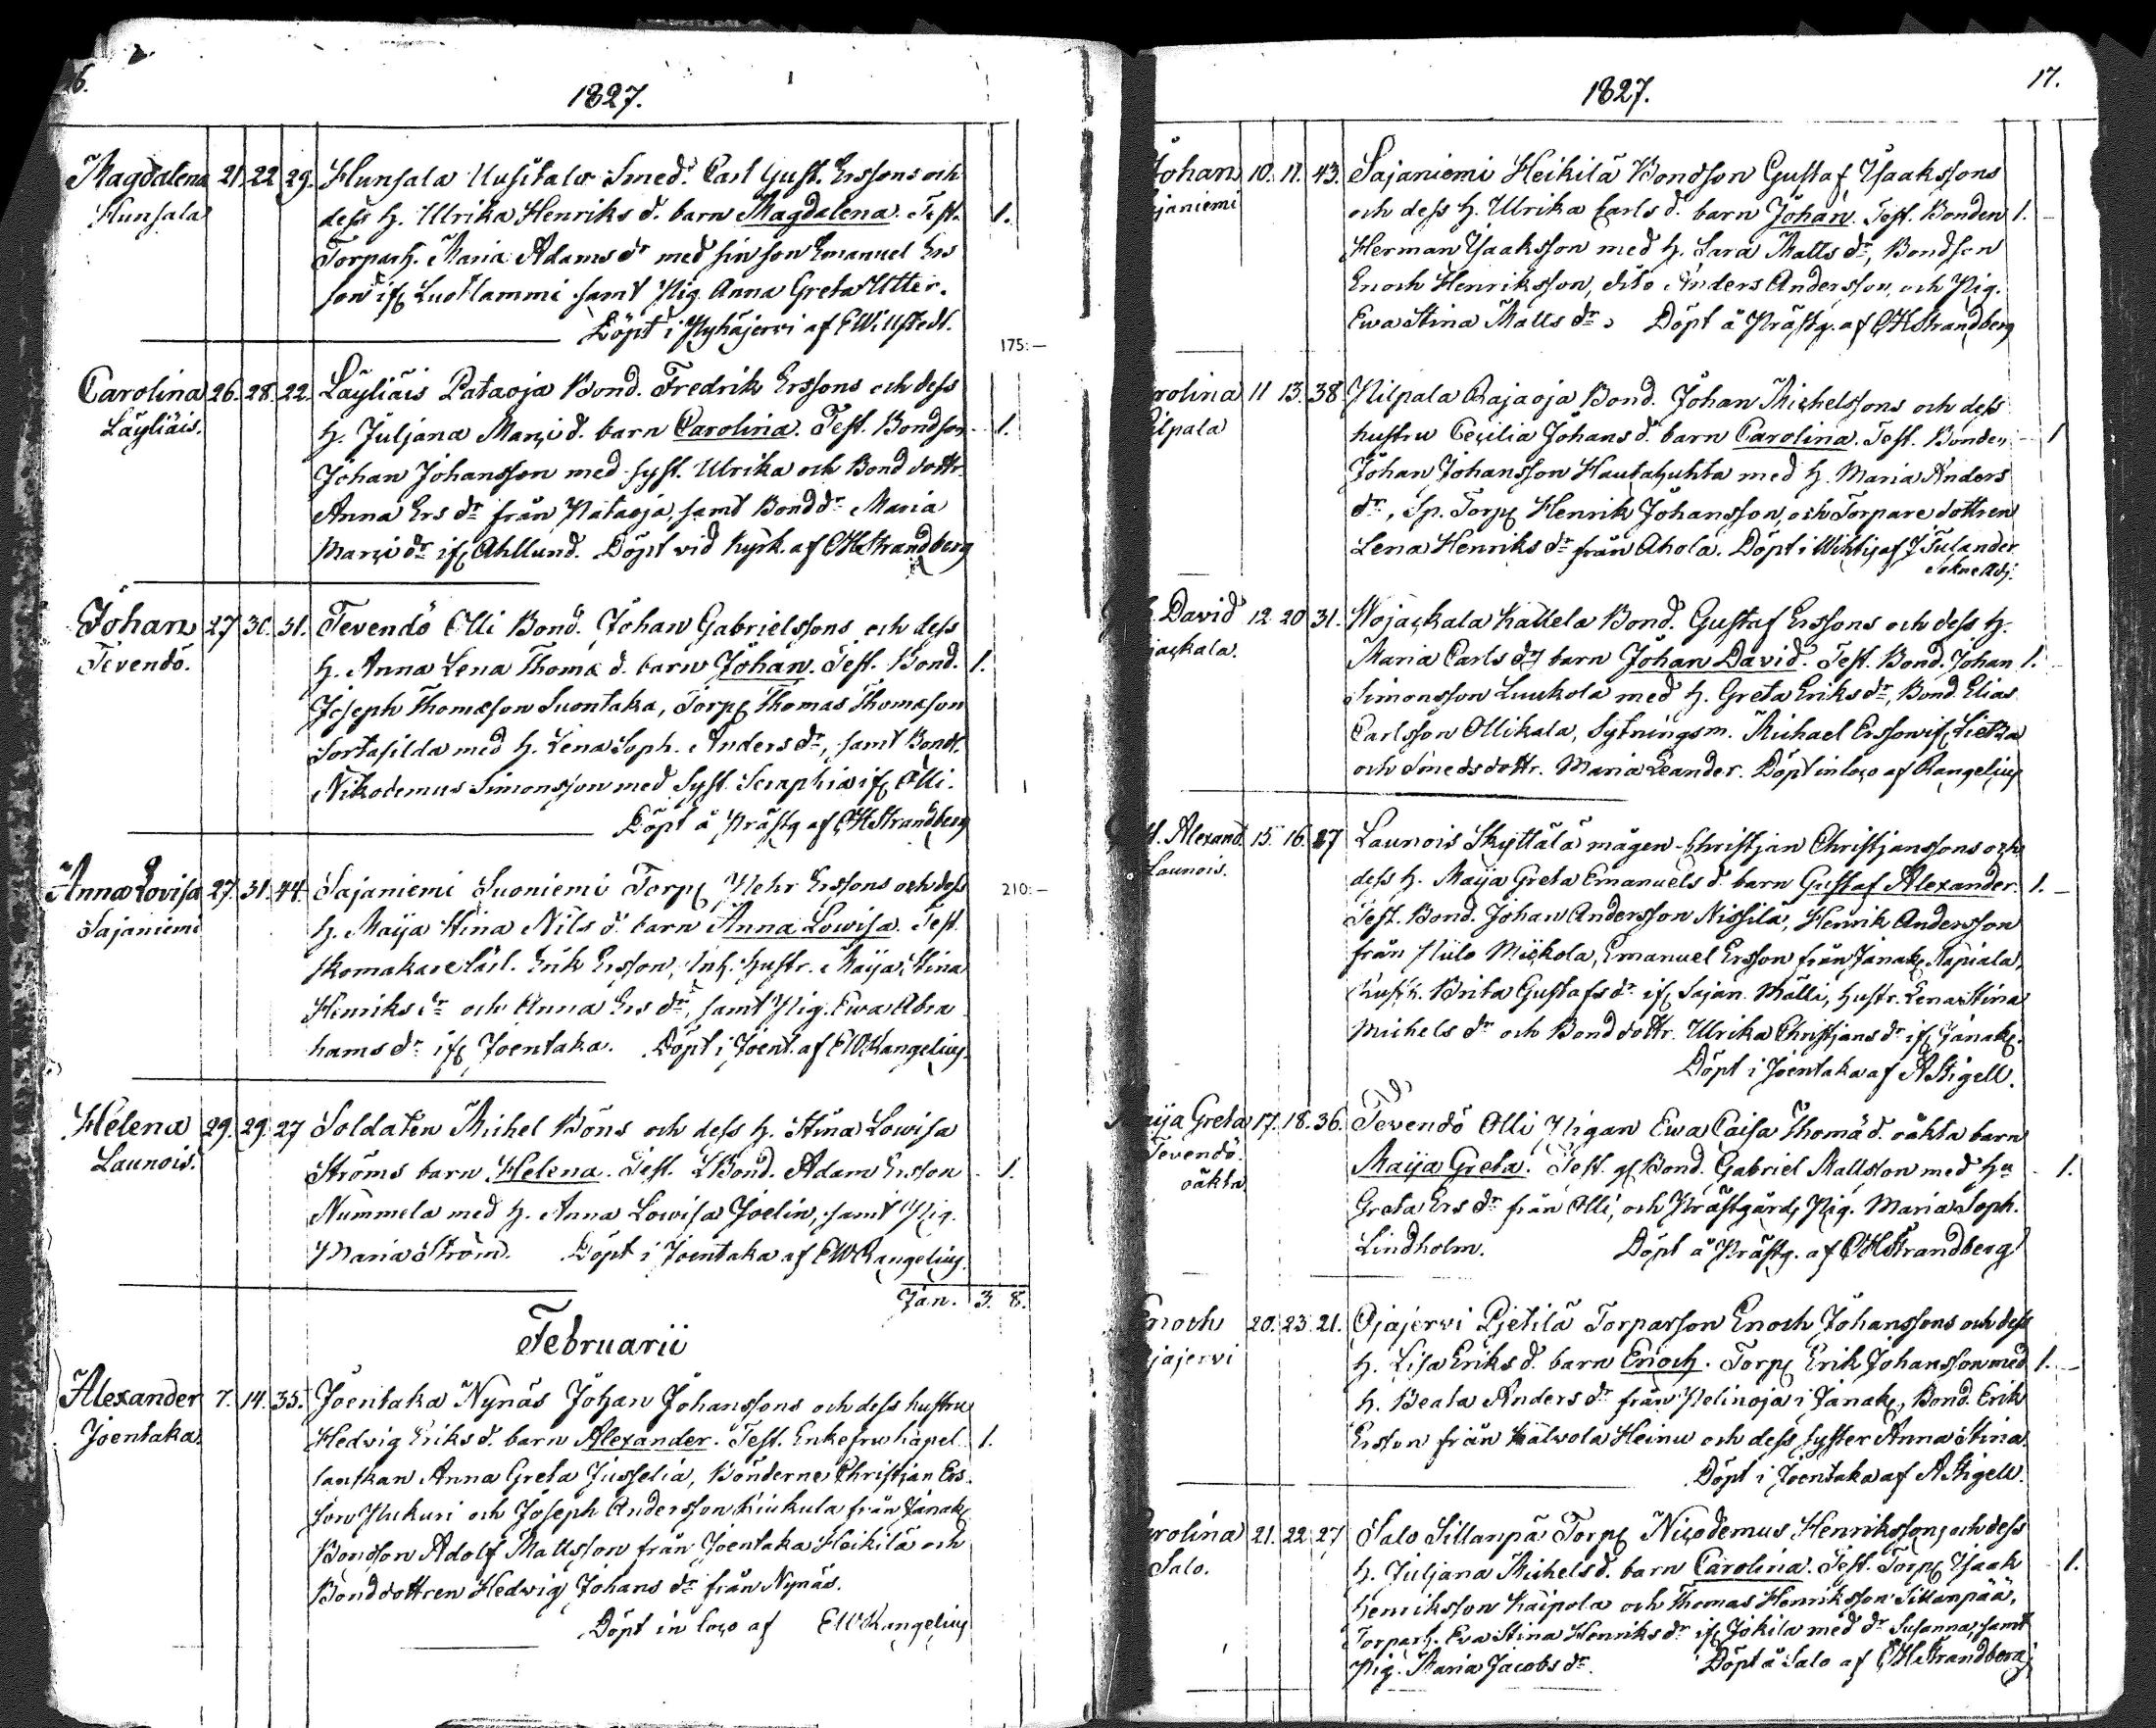 16.
1827.
Magdalena 21. 22. 29. Hunsala Uusitalo Smed. Carl Gust. Erssons och
Hunsala
dess h. Ulrika Henriks d. barn Magdalena. Test. 1.
Torparh. Maria Adams dr med sin son Emanuel Ers
son if Luotlammi samt Pig. Anna Greta Utter.
Döpt i Pyhäjervi af EWillstedt.
175:—
Carolina 26. 28. 22. Läyliäis Pataoja Bond. Fredrik Erssons och dess
Läyliäis.
h. Juljana Marci d. barn Carolina. Test. Bondson 1.
Johan Johansson med syst. Ulrika och Bond dottr.
Anna Ers dr från Pataoja, samt Bond dr Maria
Marci dr if Ahllund. Döpt vid kyrk. af CHStrandberg
Johan 27 30. 31. Tevendö Olli Bond. Johan Gabrielssons och dess
Tevendö.
h. Anna Lena Thomæ d. barn Johan. Test. Bond. 1.
Joseph Thomæson Suontaka, Torp Thomas Thomæson
Sortasilda med h. Lena Soph. Anders dr, samt Bondr.
Nikodemus Simonsson med Syst. Seraphia if Olli.
Döpt å Prästg af CHStrandberg
Anna Lovisa 27. 31. 44. Sajaniemi Suoniemi Torp Pehr Erssons och dess 210:—
Sajaniemi
h. Maija Stina Nils d. barn Anna Lowisa. Test.
Skomakare lärl. Erik Ersson, Inh. hustr. Maija Stina
Henriks dr och Anna Ers dr, samt Pig. Ewa Abra
hams dr if Joentaka. Döpt i Joent. af EWRangelius.
Helena 29. 29. 27 Soldaten Michel Böns och dess h. Stina Lowisa
Launois.
Ströms barn Helena. Test. LBond. Adam Ersson 1.
Nummela med h. Anna Lowisa Joelin, samt Pig.
Maria Ström. Döpt i Joentaka af EWRangelius.
Jan. 3. 8.
Februarii
Alexander 7. 14. 35. Joentaka Nynäs Johan Johanssons och dess hustru
Joentaka.
Hedvig Eriks d. barn Alexander. Test. Enkefru kapel 1.
lanskan Anna Greta Juselia, Bönderne Christjan Ers
son Pukuri och Joseph Andersson Kiukula från Janak
Bondson Adolf Mattsson från Joentaka Heikilä och
Bonddottren Hedwig Johans dr från Nynäs.
Döpt in loco af EWRangelius
1827.
17.
Johan 10. 11. 43. Sajaniemi Heikilä Bondson Gustaf Isaakssons
janiemi
och dess h. Ulrika Carls d. barn Johan. Test. Bonden 1.
Herman Isaaksson med h. Sara Matts dr, Bondson
Enoch Henriksson, dito Anders Andersson, och Pig.
Ewa Stina Matts dr. Döpt å Prästg. af CHStrandberg
rolina 11 13. 38. Pilpala Rajaoja Bond. Johan Michelssons och dess
ilpala
hustru Cecilia Johans d. barn Carolina. Test. Bonden 1
Johan Johansson Hautahuhta med h. Maria Anders
dr, Sp. Torp Henrik Johansson, och Torpare dottren
Lena Henriks dr från Ahola. Döpt i Wihtis af J Tulander
Sokne Adj.
David 12 20 31. Wojackala Kallela Bond. Gustaf Erssons och dess h.
jackala.
Maria Carls dr barn Johan David. Test. Bond. Johan 1.
Simonsson Luukola med h. Greta Eriks dr, Bond Elias
Carlsson Ollikala, Sytningsm. Michael Ersson if Lietza
och Smedsdottr. Maria Leander. Döpt in loco af Rangelius
Alexand. 15. 16. 27 Launois Skyttälä mågen Christjan Christjanssons och
Launois.
dess h. Maija Greta Emanuels d. barn Gustaf Alexander. 1.
Test. Bond. Johan Andersson Nissilä, Henrik Andersson
från Hiilo Mickola, Emanuel Ersson från Janak Napiala,
hustr. Brita Gustafs dr if Sajan. Mälli, hustr. Lena Stina
Michels dr och Bonddottr. Ulrika Christjans dr if Janak.
Döpt i Joentaka af AStigell.
aija Greta 17. 18. 36. Tevendö Olli Pigan Ewa Caisa Thomä d. oäkta barn
Tevendö.
oäkta
Maija Greta. Test. Bond. Gabriel Mattsson med hu 1.
Greta Ers dr från Olli, och Prästgårds Pig. Maria Soph.
Lindholm. Döpt å Prästg. af CHStrandberg
Enoch 20. 23. 21. Ojajervi Pjetilä Torparson Enoch Johanssons och dess
jajervi
h. Lisa Eriks d. barn Enoch. Torp Erik Johansson med 1.
h. Beata Anders dr från Pelinoja i Janak, Bond. Erik
Ersson från Kalvola Heinu och dess syster Anna Stina.
Döpt i Joentaka af AStigell.
rolina 21. 22. 27 Salo Sillanpä Torp Nicodemus Henrikssons och dess
Salo.
h. Juljana Michels d. barn Carolina. Test. Torp Isaak 1.
Henriksson Kaipola och Thomas Henriksson Sillanpää,
Torparh. Eva Stina Henriks dr if Jokila med dr Susanna, samt
Pig. Maria Jacobs dr. Döpt å Salo af CHStrandberg